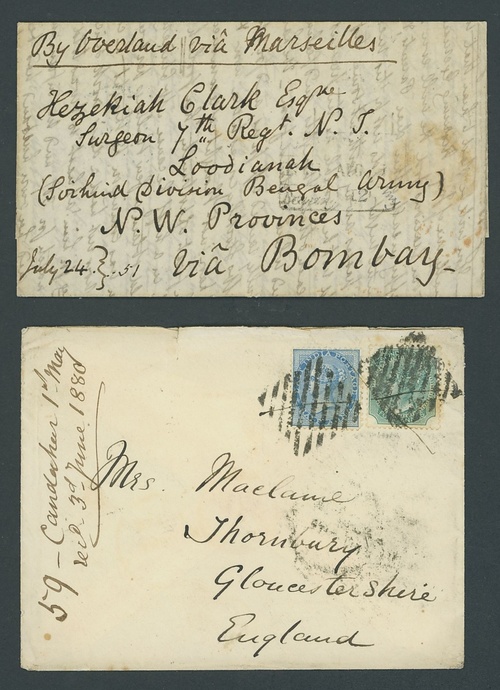 By Overland viâ Marseilles
Hezekiah Clark Esqre
Surgeon 7th Regt. N. I.
Loodianah
(Sirhind Division Bengal Army)
N. W. Provinces
July 24 51 viâ Bombay
59 - Candahar 1st May
recd. 3d June 1880
INDIA POSTAGE
Mrs. Maclaine
Thornbury
Gloucestershire
England